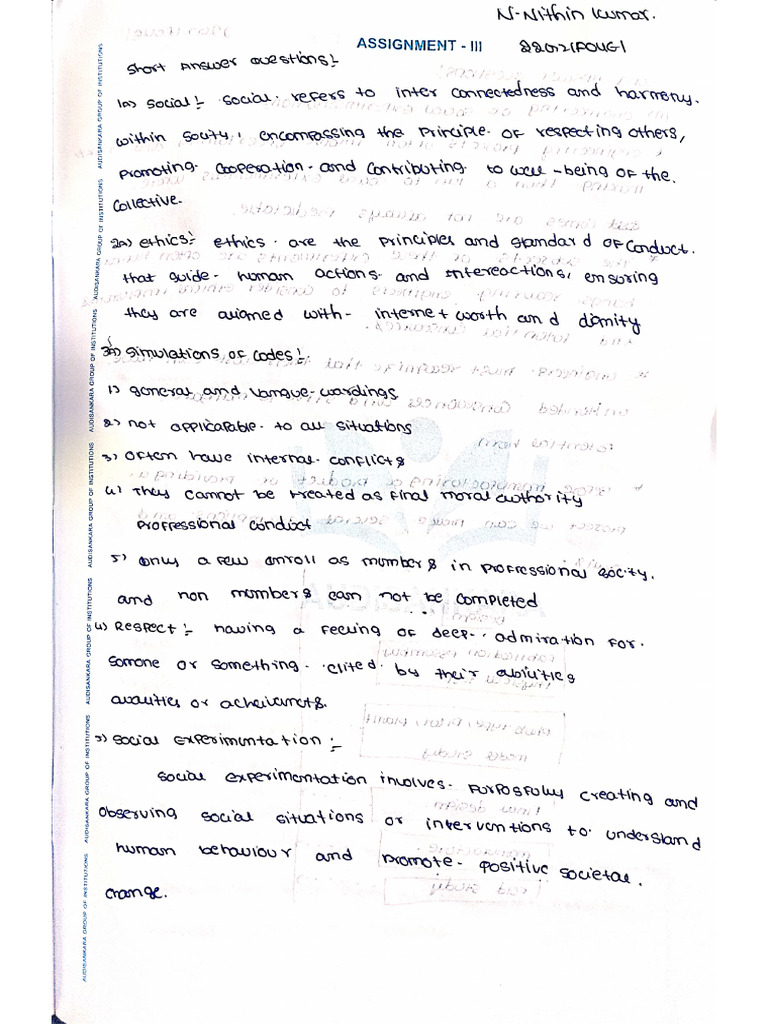 N-Nithin Kumar.
ASSIGNMENT - III
Short Answer Questions:-
1a) Social:- Social refers to inter connectedness and harmony.
within souty, encompassing the principle of respecting others,
promoting cooperation and contributing to well-being of the
collective.
2a) ethics:- ethics are the principles and standard of conduct.
that guide human actions and intereactions, ensuring
they are aligned with internet worth and dignity
3a) Simulations of codes:-
1) general and vangue-wardings
2) not applicapable to all situations
3) oftem have internal conflicts
4) They cannot be treated as final moral authority
proffessional conduct
5) only a few enroll as members in proffressional socity.
and non members can not be completed
4) Respect:- having a feeling of deep admiration for
somone or something clited by their abilities
qualities or acheivments.
5) Social experimentation:-
Social experimentation involves purposfully creating and
observing social situations or interventions to understand
human behaviour and promote positive societal.
change.
AUDISANKARA GROUP OF INSTITUTIONS AUDISANKARA GROUP OF INSTITUTIONS AUDISANKARA GROUP OF INSTITUTIONS AUDISANKARA GROUP OF INSTITUTIONS AUDISANKARA GROUP OF INSTITUTIONS AUDISANKARA GROUP OF INSTITUTIONS AUDISANKARA GROUP OF INSTITUTIONS